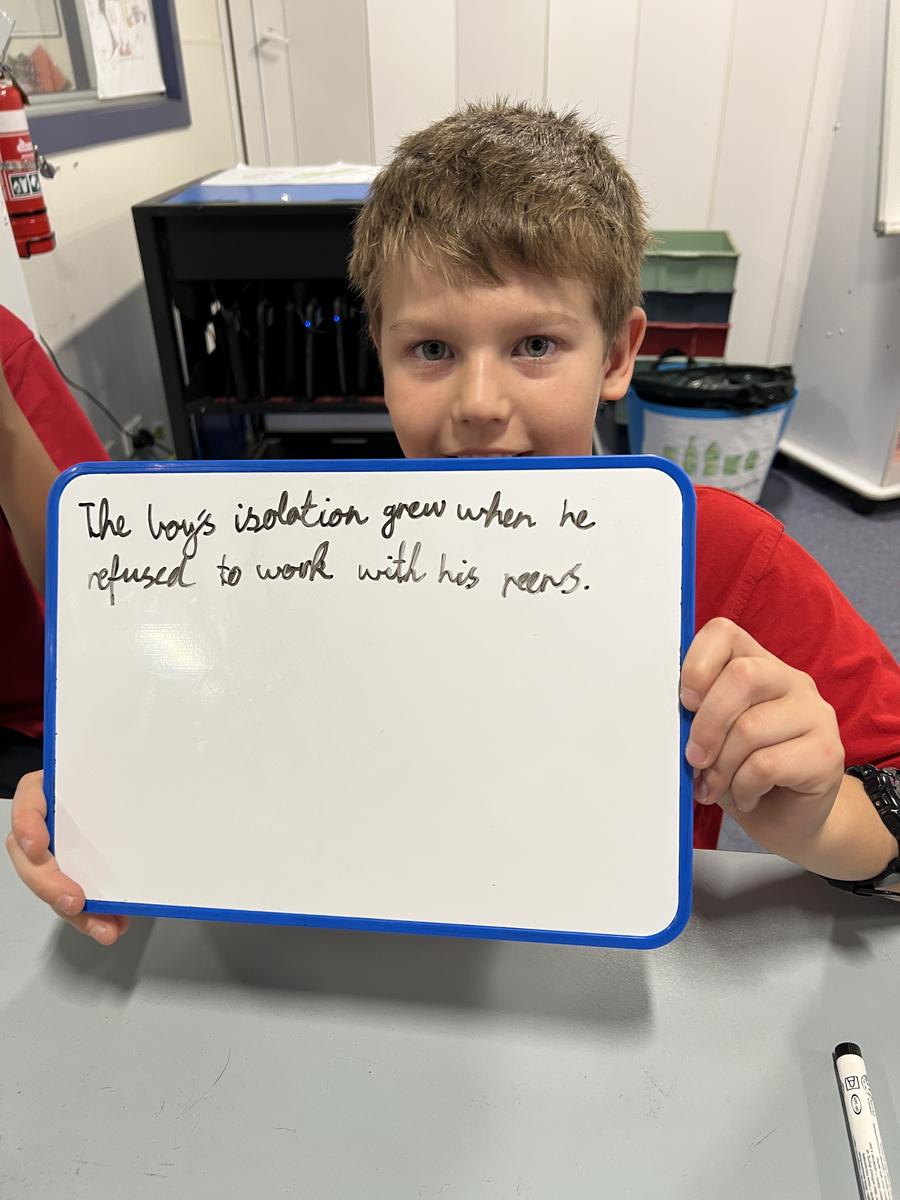 The boy's isolation grew when he
refused to work with his peers.